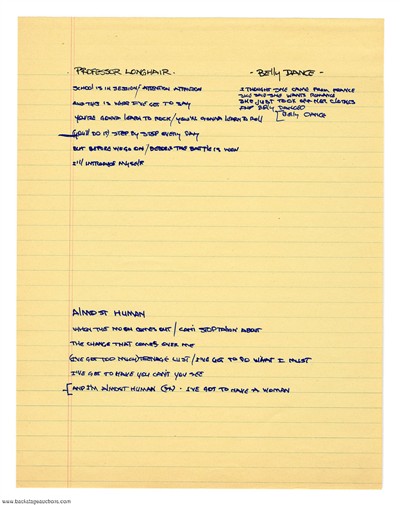 PROFESSOR LONGHAIR.
SCHOOL IS IN SESSION/ATTENTION ATTENTION
AND THIS IS WHAT I'VE GOT TO SAY
YOU'RE GONNA LEARN TO ROCK/YOU'RE GONNA LEARN TO ROLL
(YOU'LL DO IT) STEP BY STEP EVERY DAY
BUT BEFORE WE GO ON/BEFORE THE BATTLE IS WON
I'LL INTRODUCE MYSELF
- BELLY DANCE -
I THOUGHT SHE CAME FROM FRANCE
SHE SAID SHE WANTS ROMANCE
SHE JUST TOOK OFF HER CLOTHES
AND BELLY DANCED
[BELLY DANCE
ALMOST HUMAN
WHEN THE MOON COMES OUT / CAN'T STOP TALKIN ABOUT
THE CHANGE THAT COMES OVER ME
(I'VE GOT TOO MUCH) TEENAGE LUST / I'VE GOT TO DO WHAT I MUST
I'VE GOT TO HAVE YOU CAN'T YOU SEE
[AND I'M ALMOST HUMAN - I'VE GOT TO HAVE A WOMAN
www.backstageauctions.com